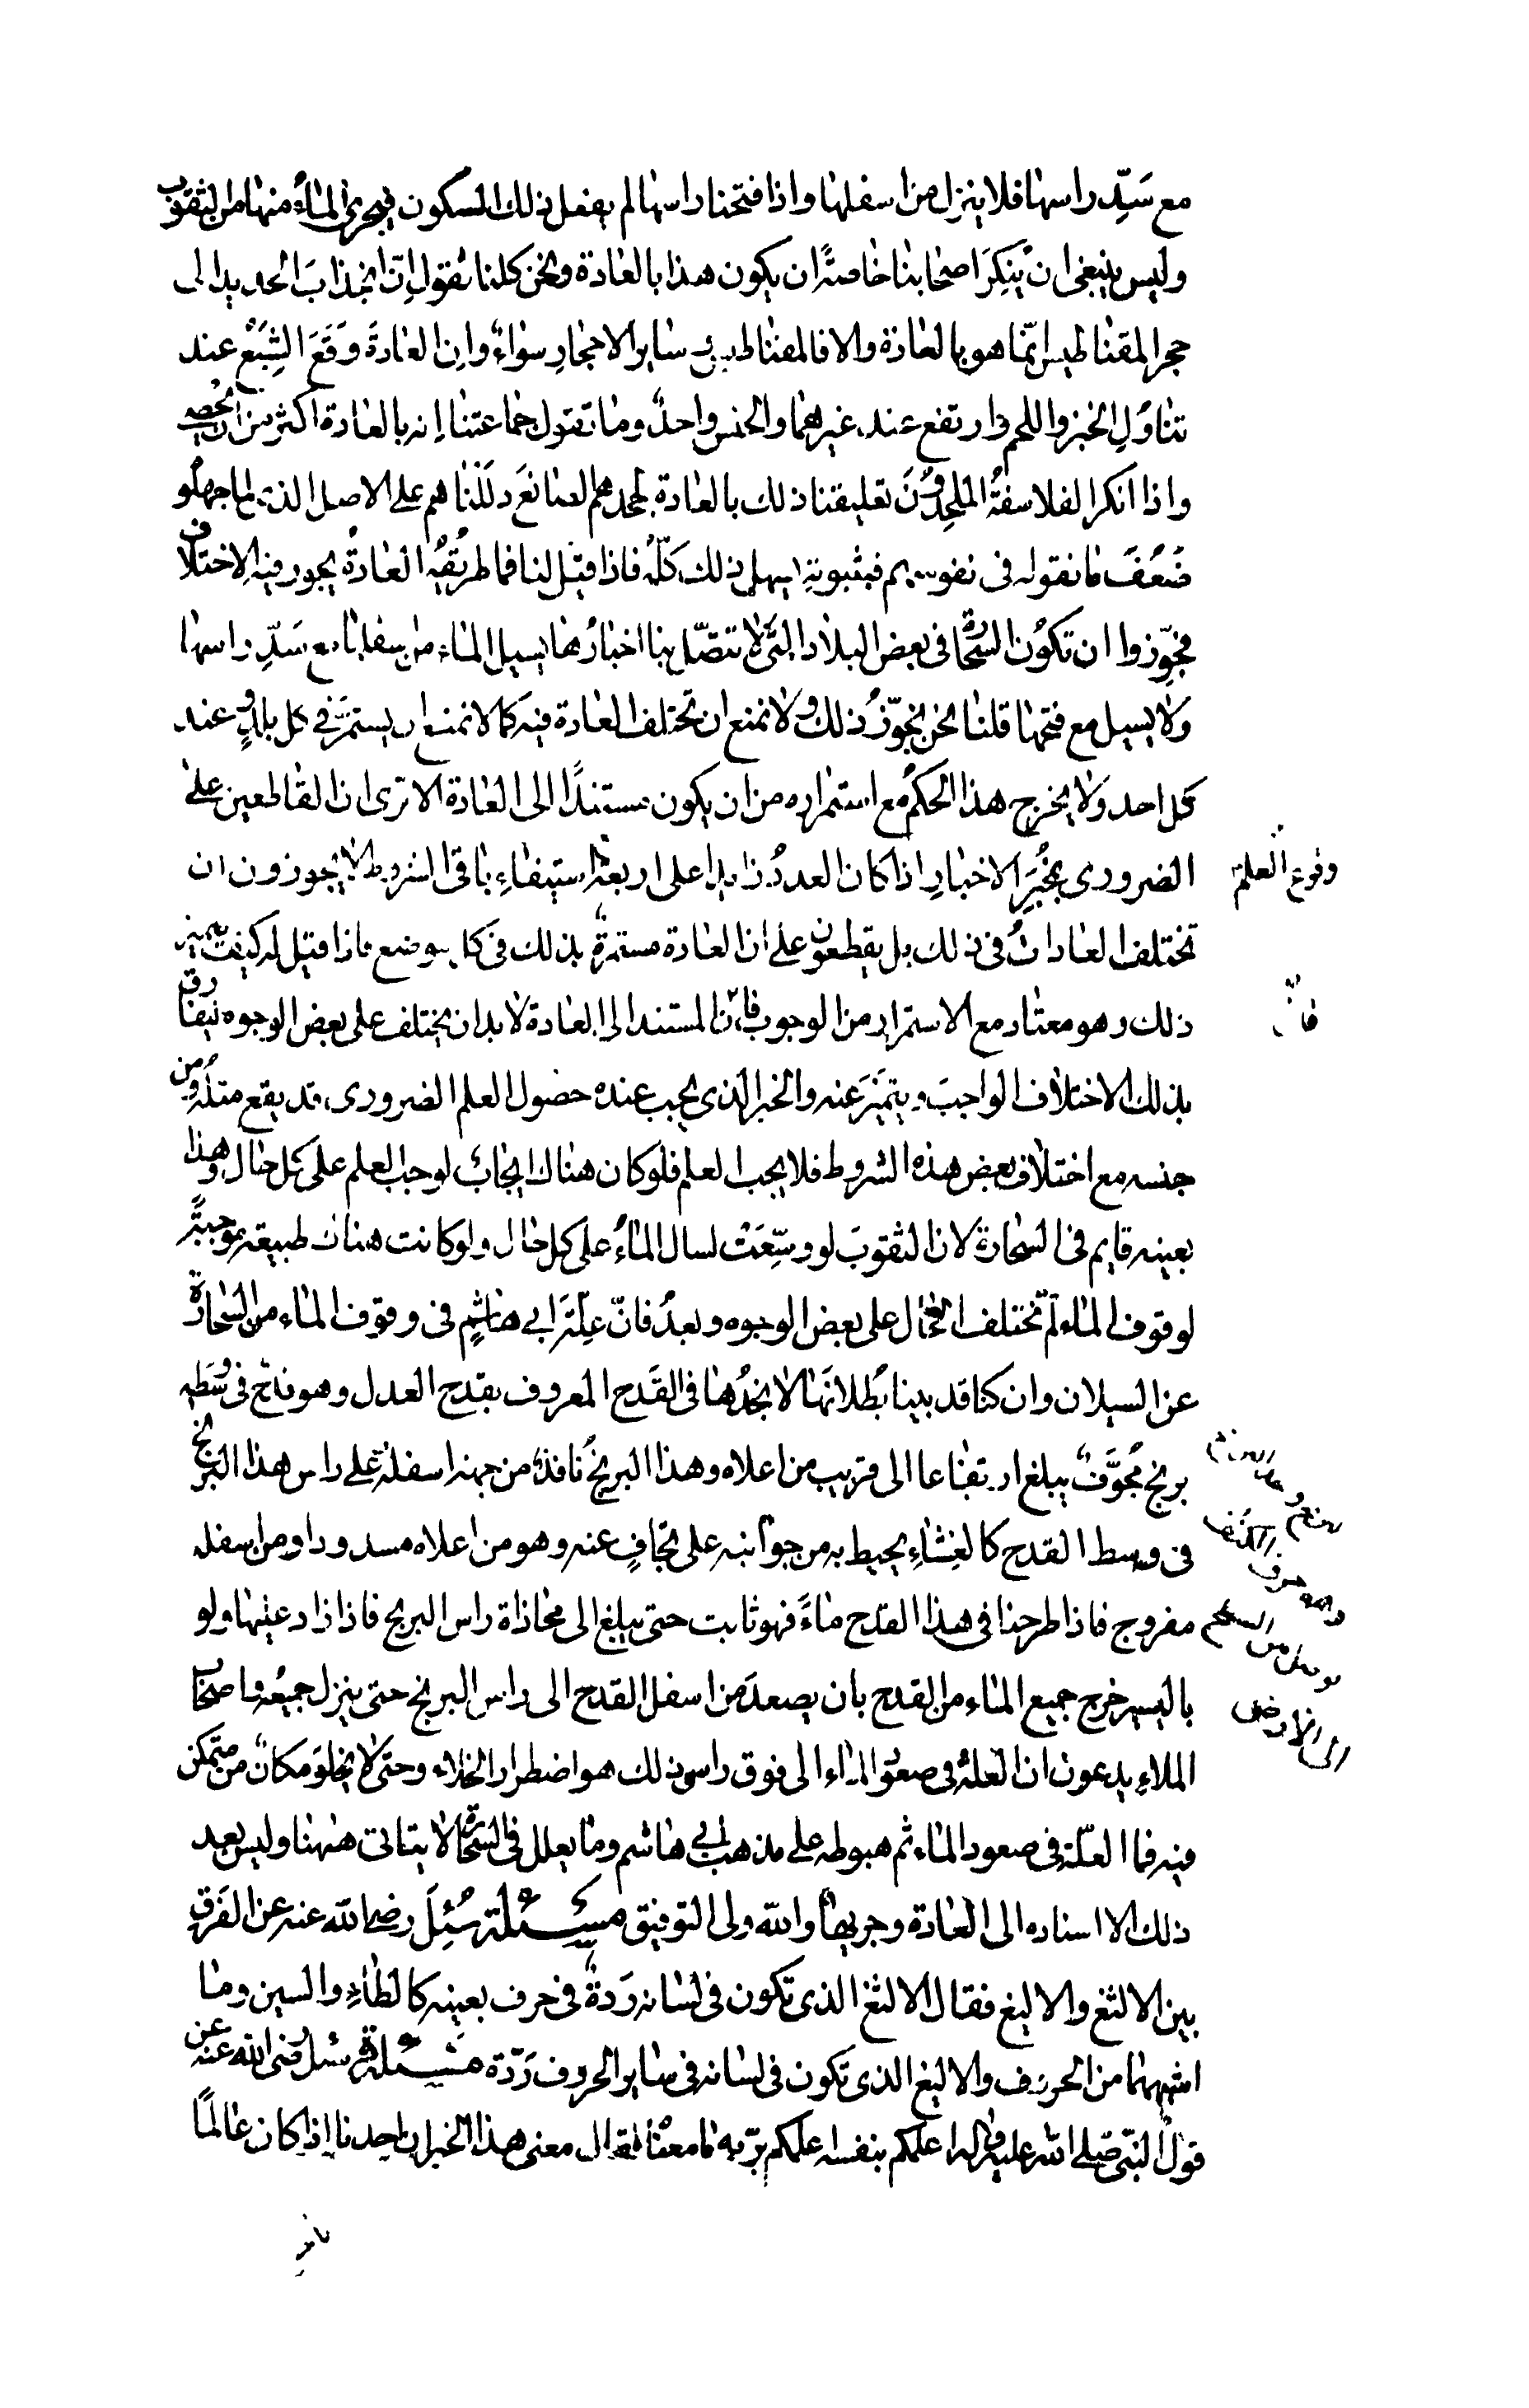 مع سَدِّ راسها فلا ينزل من اسفلها واذا فتحنا راسها لم يفعل ذلك السكون فيجرى الماءُ منها من الثقوب
وليس ينبغى ان يُنكِرَ اصحابنا خاصةً ان يكون هذا بالعادة ونحن كلنا نقول اِنّ انجذابَ الحديد الى
حجر المقناطيس انّما هو بالعادة والا فالمقناطيس وساير الاحجارِ سواءٌ وان العادةَ وَقَعَ الشِبَعُ عند
تناوُلِ الخبز واللحم وارتفع عند غيرهما والجنس واحدٌ وما تقول جماعتنا إنه بالعادة اكثر من ان يحصى
واذا انكر الفلاسفةُ المُلحِدُونَ تعليقنا ذلك بالعادة لجحدهم الصانعَ دَلَلناهم على الاصل الذى لما جهلُو
ضَعُفَ ما نقوله فى نفوسهم فبثبوته يسهل ذلك كلّه فاذا قيل لنا فما طريقُهُ العادةُ يجوز فيه الاختلاف
فجوِّزوا ان تكون السحّارة فى بعض البلاد التى لا تتصّل بنا اخبارُها يسيل الماء من سفلها مع سَدِّ راسها
ولا يسيل مع فتحها قلنا نحن نجوّزُ ذلك ولا نمنع ان تختلف العادة فيه كما لا نمنع ان يستمرّ فى كل بلدٍ وعند
كل احد ولا يخرج هذا الحكمُ مع استمراره من ان يكون مستندًا الى العادة الا ترى ان القاطعين على
وقوع العلم
الضرورى بمُخبَرِ الاخبارِ اذا كان العددُ زايدا على اربعة باستيفاءِ باقى الشروط لا يجوزون ان
تختلف العاداتُ فى ذلك بل يقطعون على ان العادة مستمرةٌ بذلك فى كل موضع فاذا قيل لهم كيف يتميز
ذلك وهو معتاد مع الاستمرار من الوجوب فانّ المستند الى العادة لابد ان يختلف على بعض الوجوه فيفارق
بذلك الاختلاف الواجبَ ويتميّزَ عنه والخبر الذى يجب عنده حصول العلم الضرورى قد يقع مثلُه ومن
جنسه مع اختلاف بعض هذه الشروط فلا يجب العلم فلو كان هناك ايجابٌ لوجب العلم على كل حال وهذا
بعينه قايم فى السحارة لان الثقوبَ لو وسِّعَتْ لسال الماءُ على كل حال ولو كانت هناك طبيعةٌ موجبةً
لوقوف الماء لم تختلف الحال على بعض الوجوه وبعدُ فانّ علّةَ ابى هاشمٍ فى وقوف الماء من السحارة
عن السيلان وان كنا قد بينا بُطلانَها لا نجدُها فى القَدح المعروف بقدح العدل وهو قدح فى وسَطه
بربخ مُجوَّفٌ يبلغ ارتفاعا الى قريب من اعلاه وهذا البربخُ نافذٌ من جهة اسفله على راس هذا البربخ
فى وسط القدح كالغِشاءِ يحيط به من جوانبه على تجافٍ عنه وهو من اعلاه مسدود ومن اسفله
مفروج فاذا طرحنا فى هذا القدح ماءً فهو ثابت حتى يبلغ الى محاذاة راس البربخ فاذا زاد عليها ولو
باليسير خرج جميع الماء من القدح بان يصعدَ من اسفل القدح الى راس البربخ حتى ينزل جميعُه واصحاب
الى الارض
الملاءِ يدعون ان العلة فى صعود الماء الى فوق راس ذلك هو اضطرار الخلاء وحتى لا يخلوَ مكانٌ من متمكن
فيه فما العلّة فى صعود الماء ثم هبوطه على مذهب ابى هاشم وما يعلل فى السحارة لا يتاتى هٰهنا وليس بعد
ذلك الا اسناده الى العادة وجريها والله ولى التوفيق مسئلة سُئِلَ رضى الله عنه عن الفَرق
بين الالثغ والاليغ فقال الالثغ الذى تكون فى لسانه رَدةٌ فى حرف بعينه كالطاءِ والسين وما
اشبههما من الحروف والاليغ الذى تكون فى لسانه فى ساير الحروف رَدّة مسئلة وسئل رضى الله عنه عن
قول النبى صلى الله عليه واله اعلمكم بنفسه اعلمكم بربّه ما معناه فقال معنى هذا الخبر ان احدنا اذا كان عالمًا